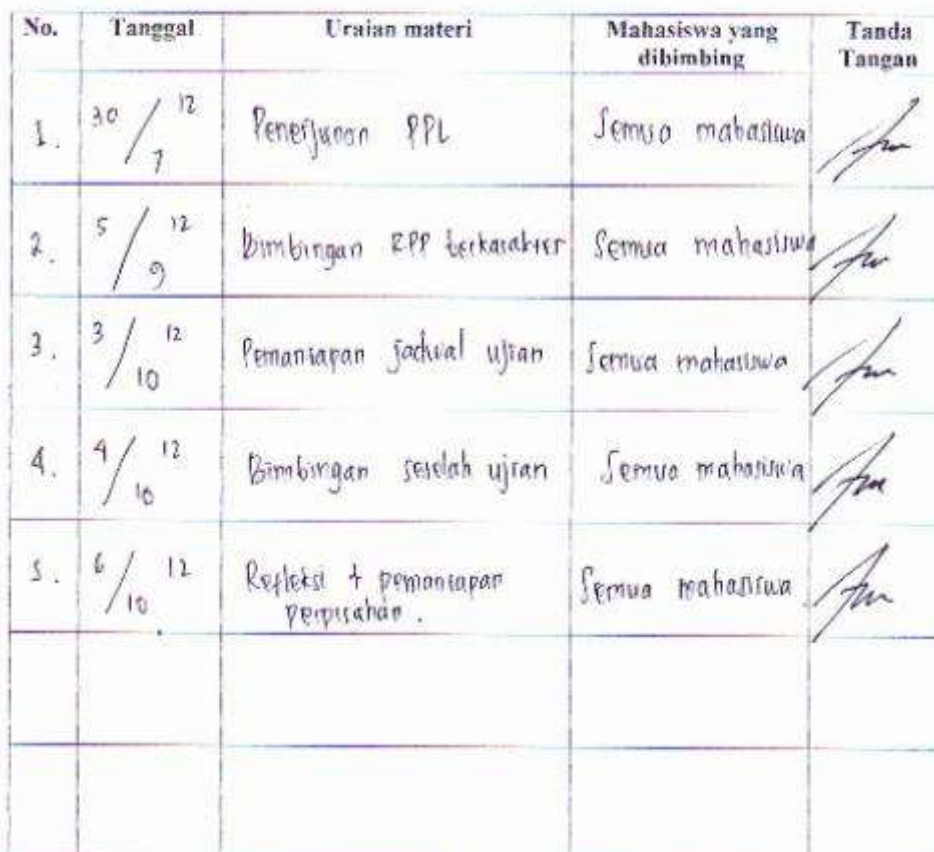 No. Tanggal Uraian materi Mahasiswa yang dibimbing Tanda Tangan
1. 30/7 12 Penerjunan PPL Semua mahasiswa
2. 5/9 12 Bimbingan RPP berkarakter Semua mahasiswa
3. 3/10 12 Pemantapan jadwal ujian Semua mahasiswa
4. 4/10 12 Bimbingan setelah ujian Semua mahasiswa
5. 6/10 12 Refleksi + pemantapan Semua mahasiswa
perpisahan.